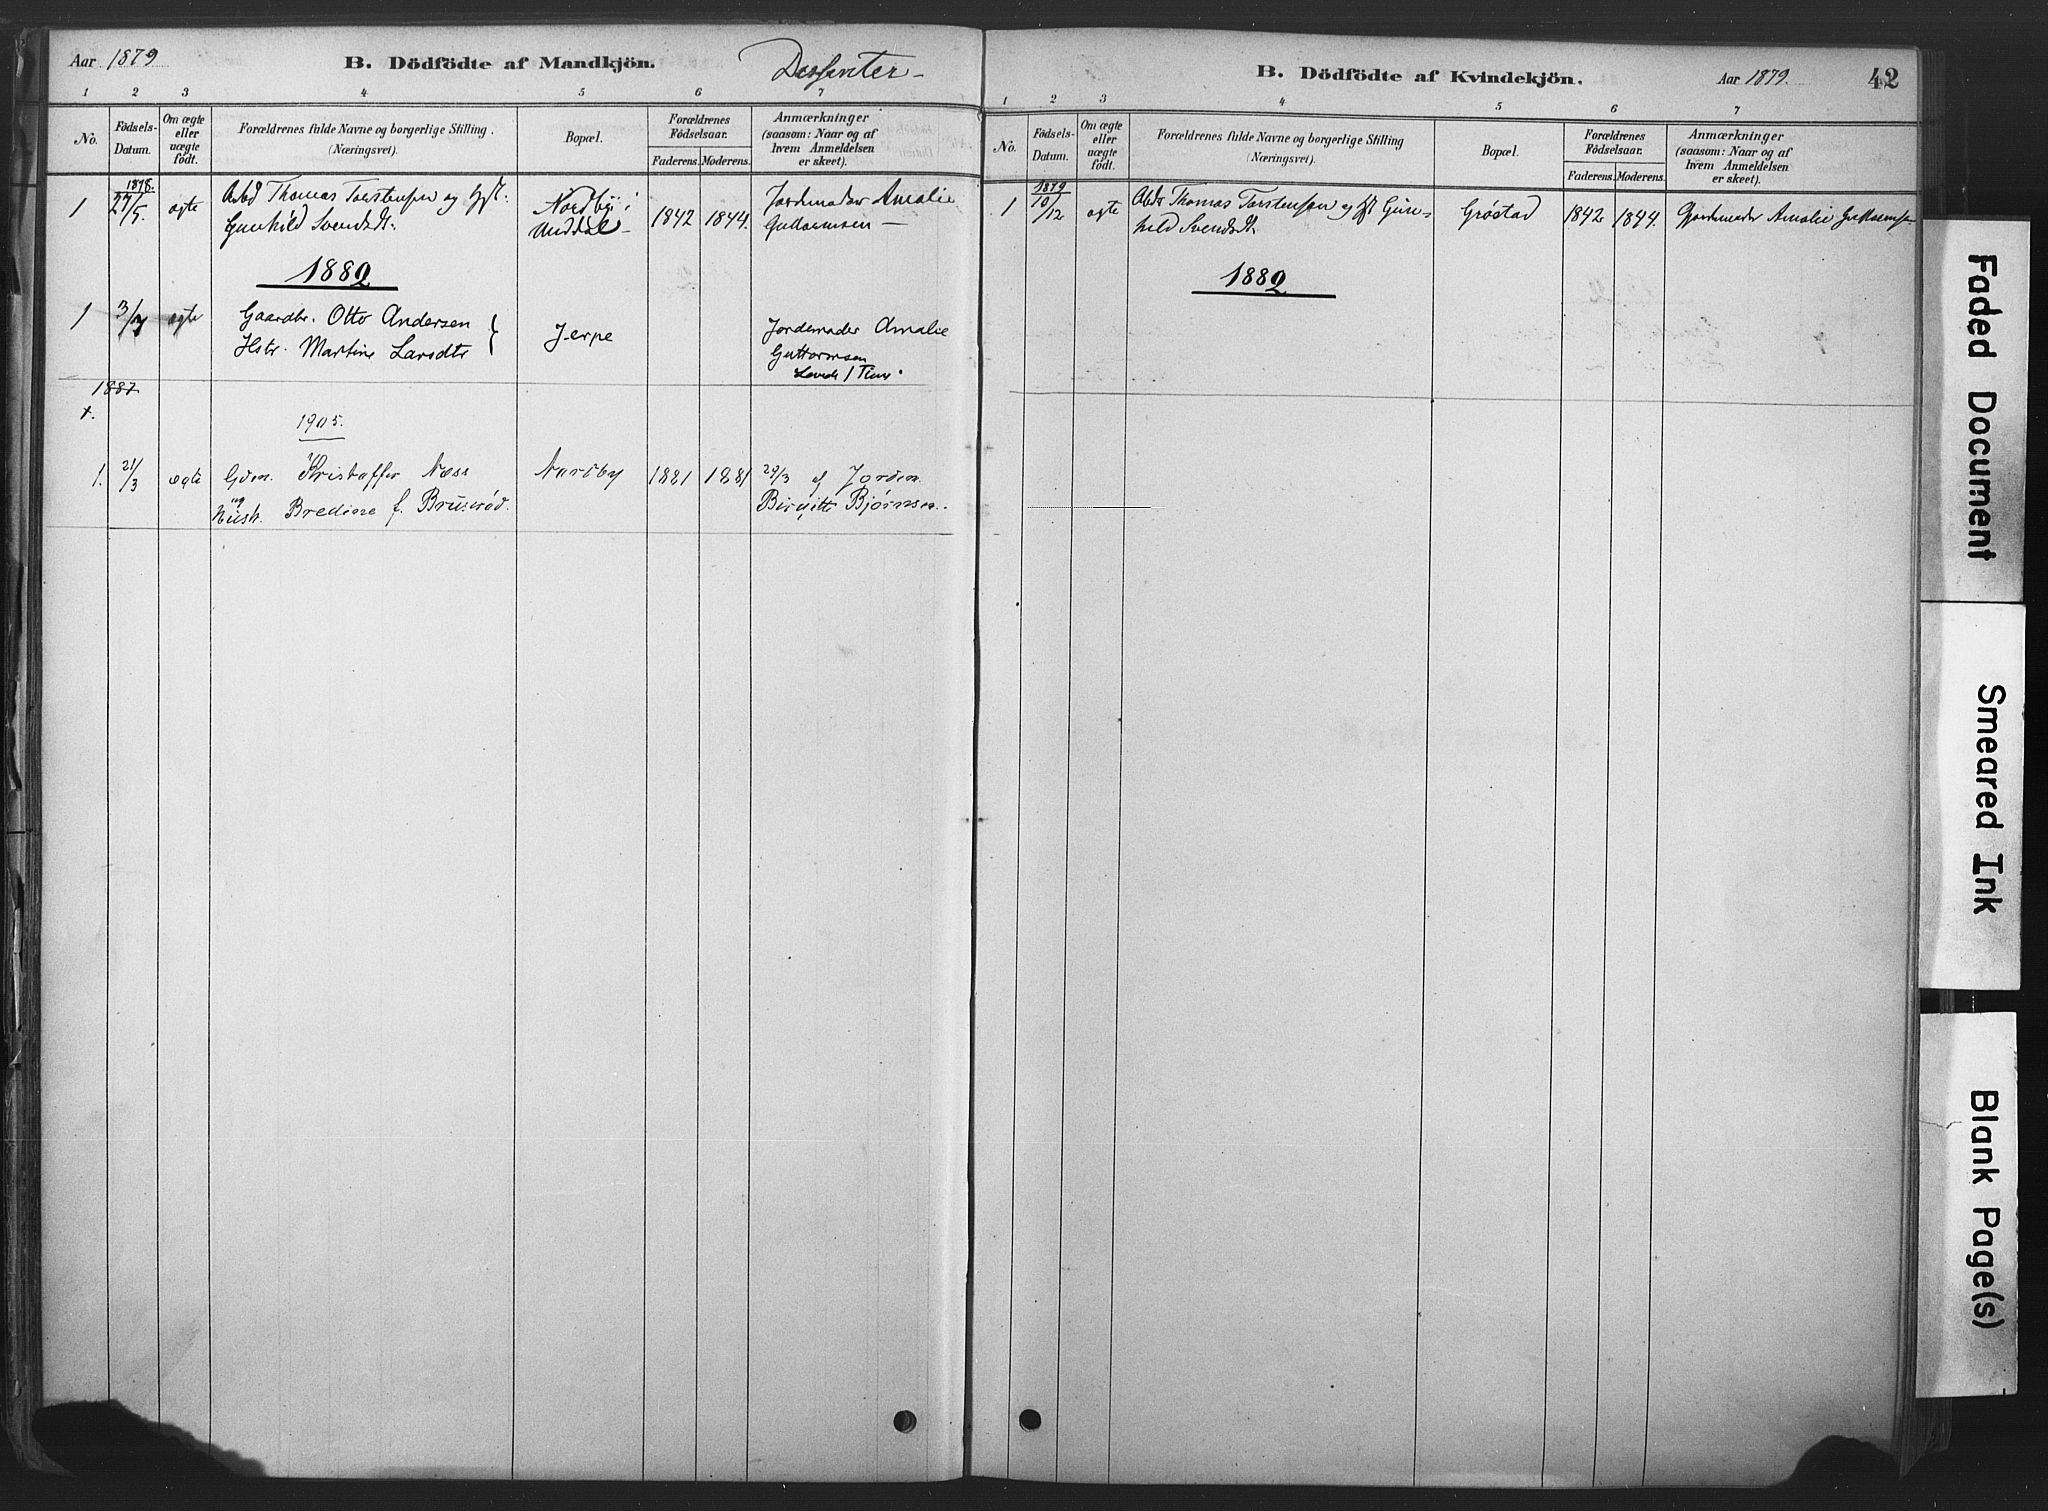 Aar 1879
B. Dödfödte af Mandkjön.
Dissenter
1 2 3 4 5 6 7
No.
Födsels-Datum.
Om ægte eller uægte födt.
Forældrenes fulde Navne og borgerlige Stilling.
(Næringsvei).
Bopæl.
Forældrenes Födselsaar.
Faderens. Moderens.
Anmærkninger
(saasom: Naar og af
hvem Anmeldelsen
er skeet).
1 1878. 27/5. ægte Thomas Torstensen og
Gunhild Svendsdt.
Nordby i
1842 1844.
Jordemoder Amalie
Guttormsen —
1882
1 3/7 ægte Gaardbr. Otto Andersen
Hstr. Martine Larsdtr
Jerpe
Jordemoder Amalie
Guttormsen
1887
1905.
1. 21/3 ægte Gdm. Kristoffer Næss
og Hustr. Bredine f. Bruserød.
Nordby
1881 1881
29/3 af Jordm.
Birgitte Bjørnsen.
B. Dödfödte af Kvindekjön.
Aar 1879.
42
1 2 3 4 5 6 7
No.
Födsels-Datum.
Om ægte eller uægte födt.
Forældrenes fulde Navne og borgerlige Stilling
(Næringsvei).
Bopæl.
Forældrenes Födselsaar.
Faderens. Moderens.
Anmærkninger
(saasom: Naar og af
hvem Anmeldelsen
er skeet).
1 1879 10/12 ægte Thomas Torstensen og Gun-
hild Svendsdt.
Grøstad
1842 1844.
Gjordemoder Amalie Guttormsen
1882
Faded Document
Smeared Ink
Blank Page(s)